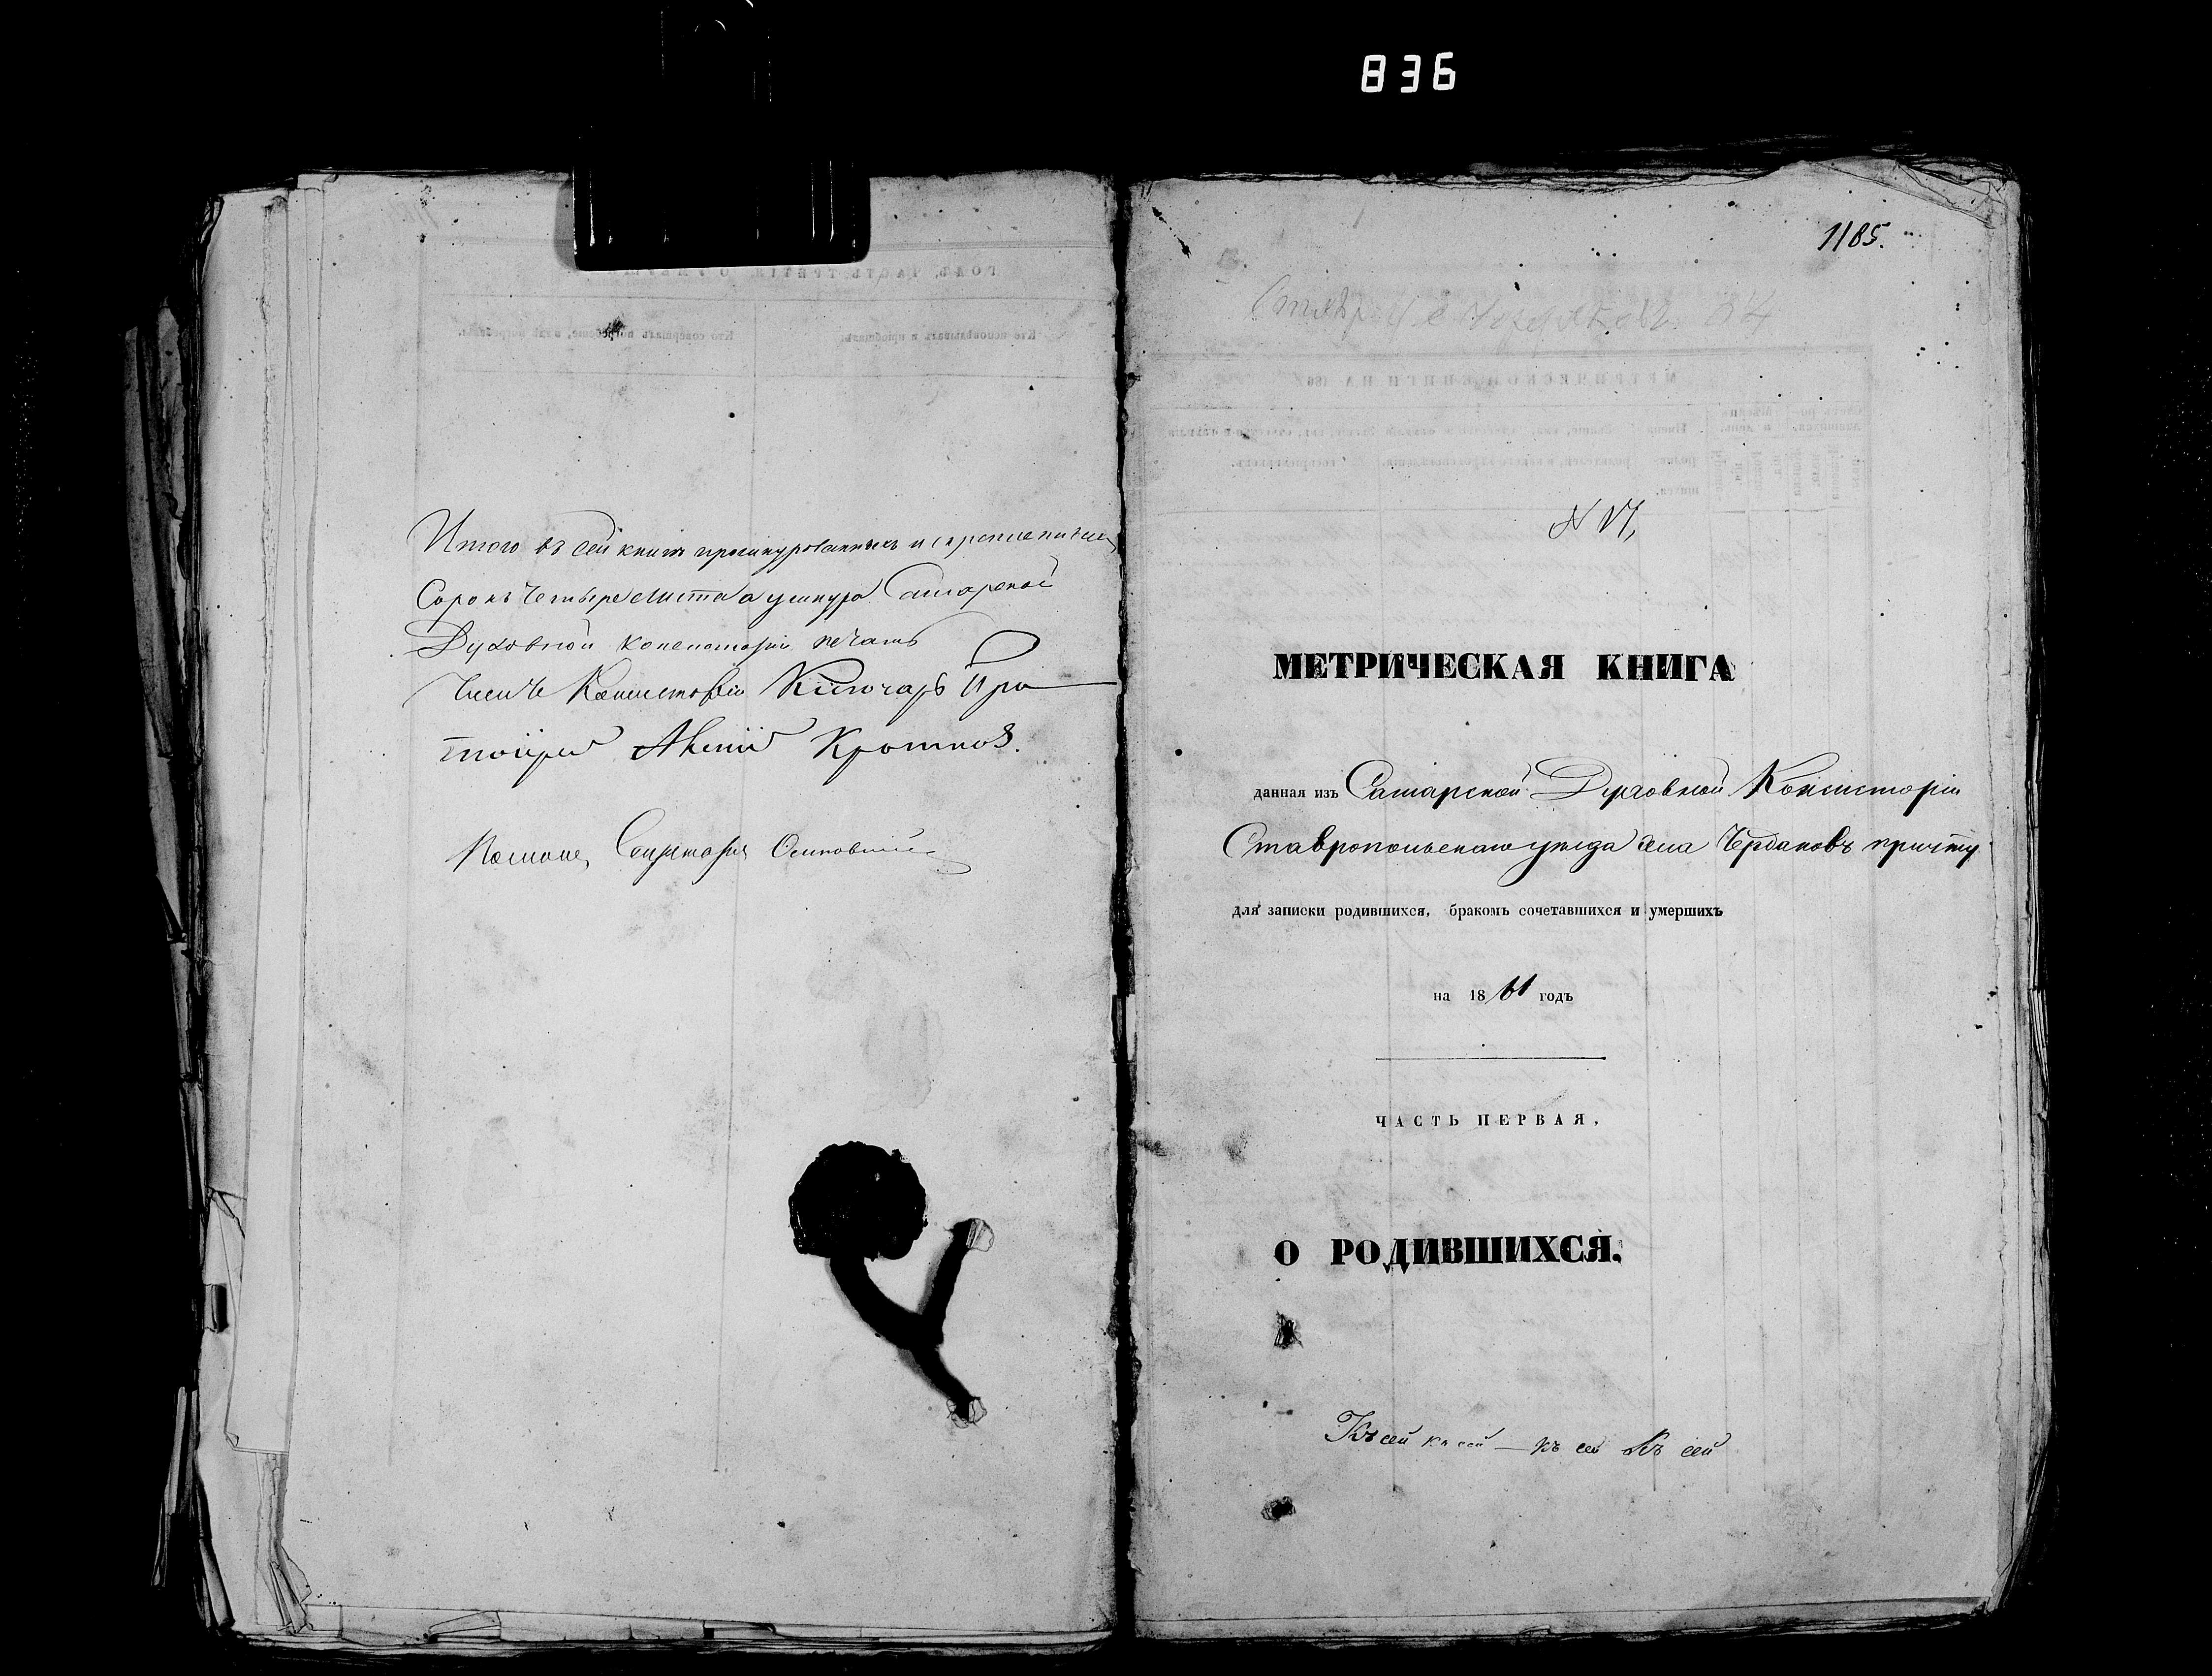 836
Итого въ сей книгѣ прошнурованныхъ и скрепленныхъ
Сорокъ четыре листа а у шнура Самарской
Духовной Консисторіи печать
Членъ Консисторіи Ключарь Про
тоіерей Кротковъ.
Помощ. Секретаря
1185.
МЕТРИЧЕСКАЯ КНИГА
данная изъ Самарской Духовной Консисторіи
Ставропольскаго уѣзда села Чердаковъ причту
для записки родившихся, бракомъ сочетавшихся и умершихъ
на 1861 годъ
ЧАСТЬ ПЕРВАЯ,
О РОДИВШИХСЯ.
Къ сей къ сей — къ сей Къ сей